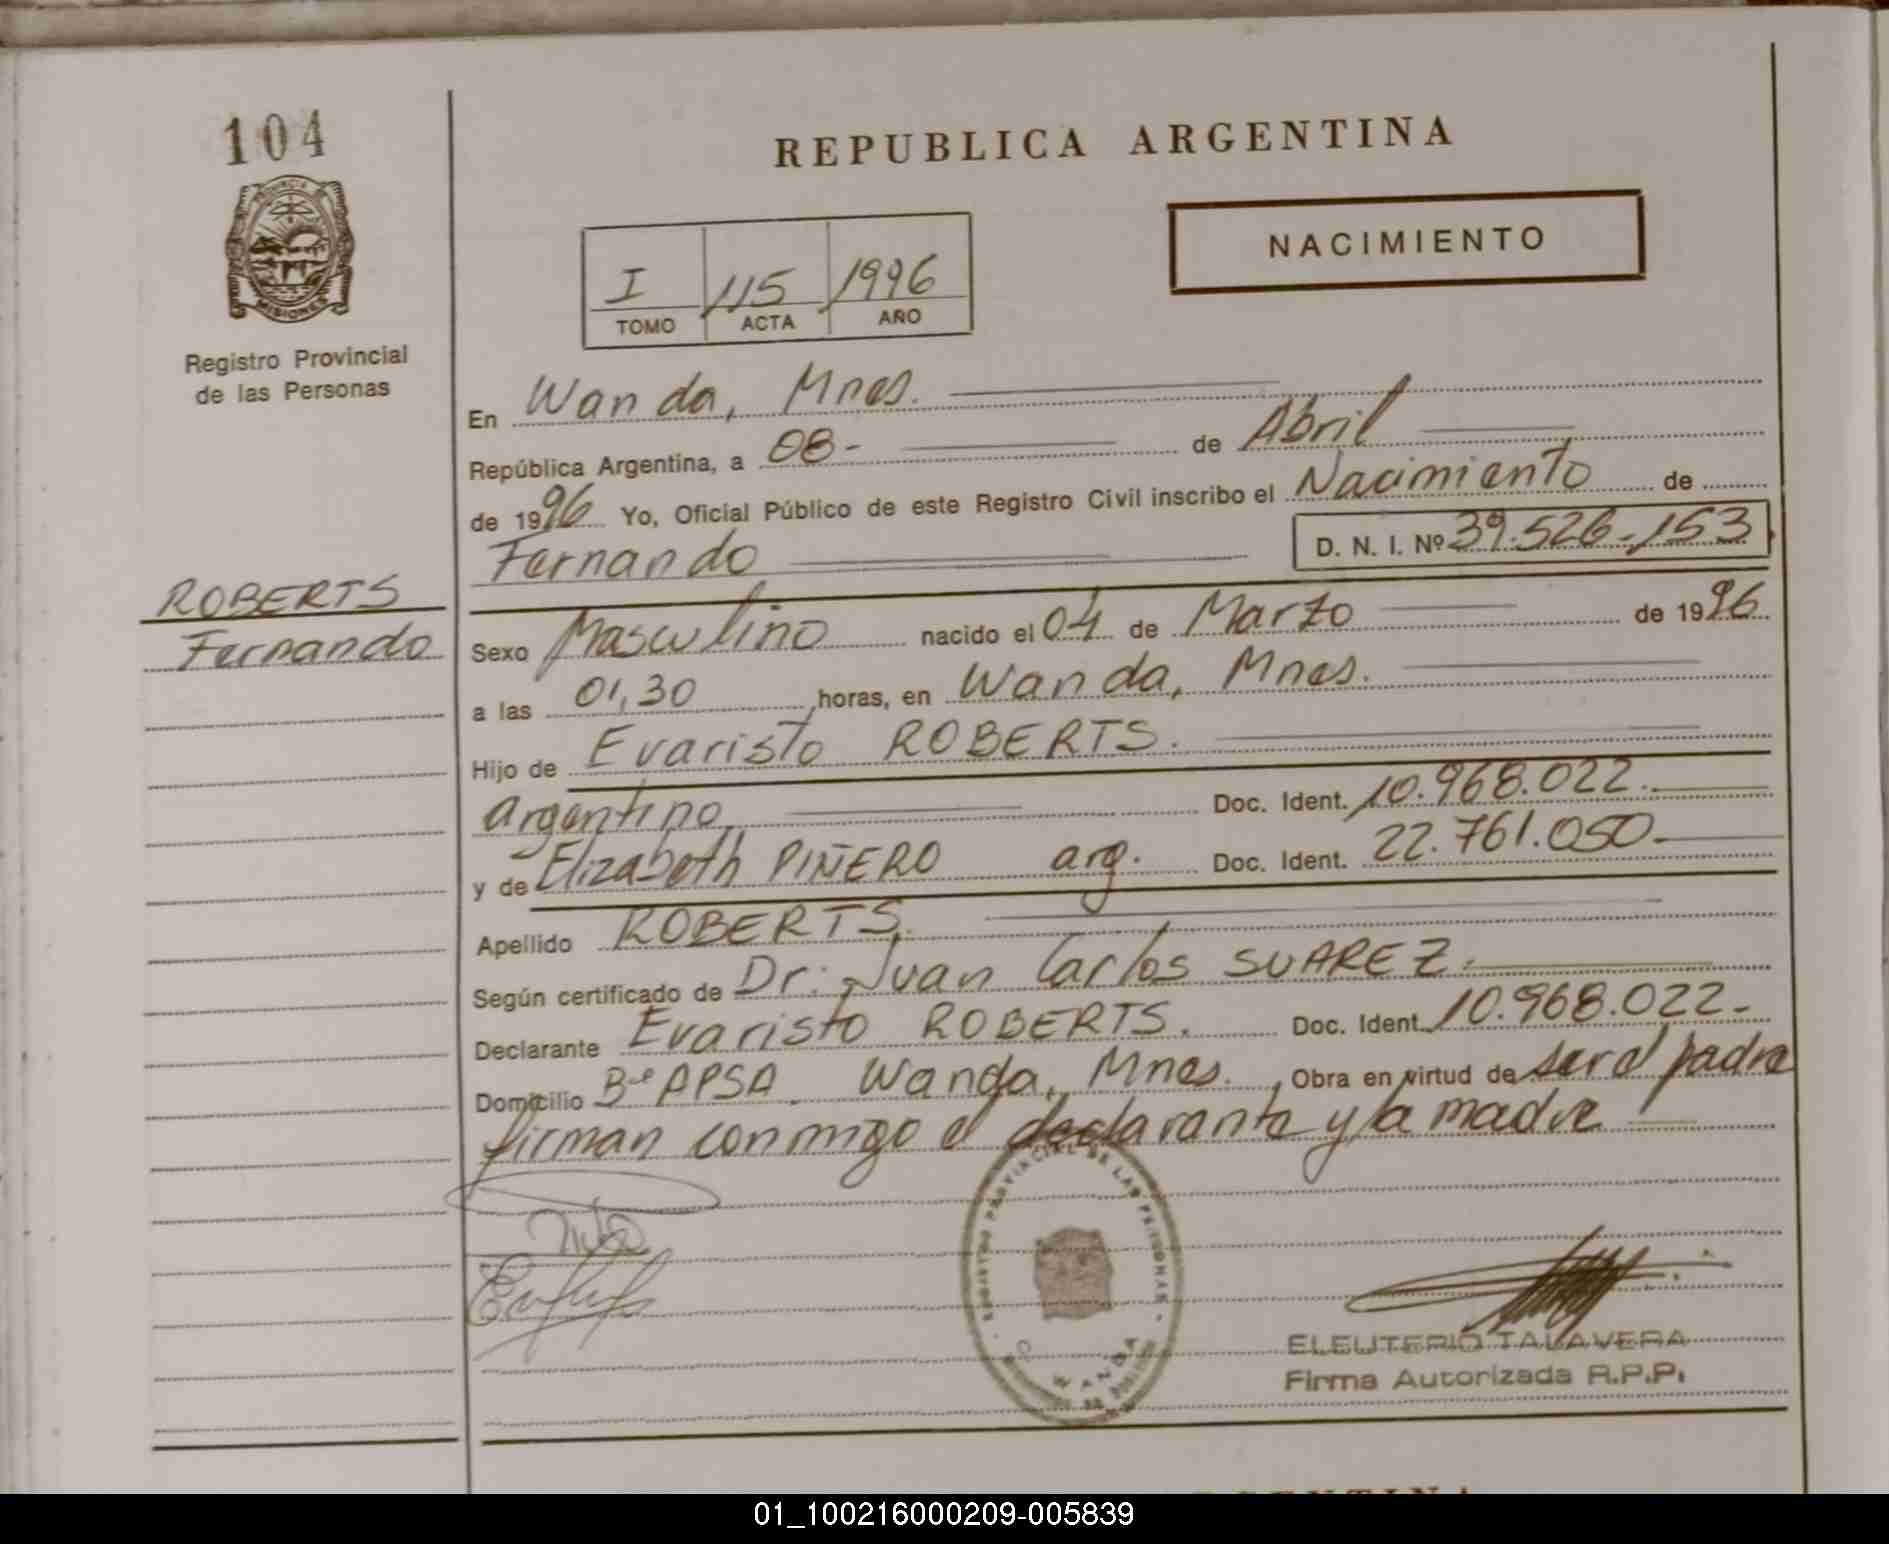 104
REPUBLICA ARGENTINA
NACIMIENTO
PROVINCIA DE
MISIONES
Registro Provincial
de las Personas
I 115 1996
TOMO ACTA AÑO
En Wanda, Mnes.
República Argentina, a 08- de Abril
de 1996 Yo, Oficial Público de este Registro Civil inscribo el Nacimiento de
Fernando D. N. I. Nº 39.526.153
ROBERTS
Fernando
Sexo Masculino nacido el 04 de Marzo de 1996
a las 01,30 horas, en Wanda, Mnes.
Hijo de Evaristo ROBERTS.
argentino Doc. Ident. 10.968.022.
y de Elizabeth PIÑERO arg. Doc. Ident. 22.761.050
Apellido ROBERTS.
Según certificado de Dr. Juan Carlos SUAREZ.
Declarante Evaristo ROBERTS. Doc. Ident. 10.968.022-
Domicilio Bº APSA. Wanda, Mnes. , Obra en virtud de ser el padre
firman conmigo el declarante y la madre
REGISTRO PROVINCIAL DE LAS PERSONAS
WANDA
ELEUTERIO TALAVERA
Firma Autorizada R.P.P.
01_100216000209-005839